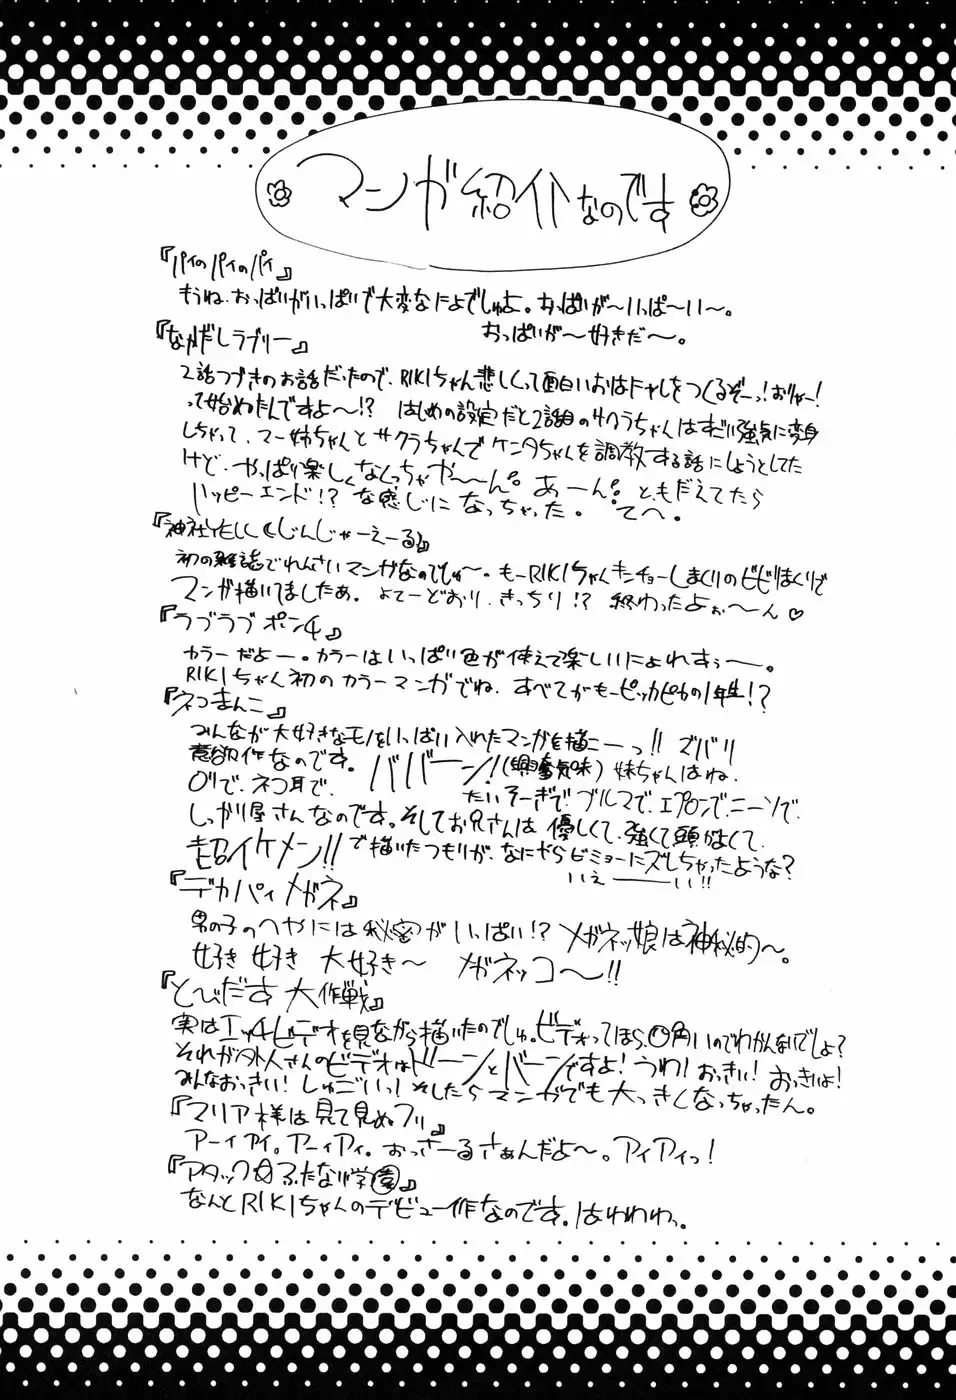 マンガ紹介なのです
『パイのパイのパイ』
もうね、おっぱいがいっぱいで大変なにょでしゅよ。おっぱいが〜いっぱ〜い〜。
おっぱいが〜好きだ〜。
『なかだしラブリー』
2話つづきのお話だったので、RIKIちゃん悲しくって面白いおはなしをつくるぞーっ!おりゃー!
って始めたんですよ〜!? はじめの設定だと2話目のサクラちゃんはすごい強気に変身
しちゃって、マー姉ちゃんとサクラちゃんでケンタちゃんを調教する話にしようとしてた
けど、やっぱり楽しくなくっちゃや〜〜ん。あーん。ともだえてたら
ハッピーエンド!? な感じになっちゃった。てへ。
『神社ELしじんじゃーえーる』
初の雑誌でれんさいマンガなのでしゅ〜。もーRIKIちゃんキンチョーしまくりのビビりまくりで
マンガ描いてましたぁ。よてーどおり、きっちり!? 終わったよぉ〜ん♡
『ラブラブポンチ』
カラーだよー。カラーはいっぱい色が使えて楽しいにょれすぅ〜。
RIKIちゃん初のカラーマンガでね、すべてがもーピッカピカの1年生!?
『ネコまんこ』
みんなが大好きなモノをいっぱい入れたマンガを描こーっ!! ズバリ
意欲作なのです。ババーン!(興奮気味) 妹ちゃんはね、
ロリで、ネコ耳で、たいそーぎで、ブルマで、エプロンで、ニーソで、
しっかり屋さんなのです。そしてお兄さんは優しくて、強くて頭がよくて、
超イケメン!! で描いたつもりが、なにやらビミョーにズレちゃったような?
いぇーーい!!
『デカパイメガネ』
男の子のへやには秘密がいっぱい!? メガネッ娘は神秘的〜。
好き 好き 大好き〜 メガネッコ〜!!
『とびだす大作戦』
実はエッチビデオを見ながら描いたのでしゅ。ビデオってほら、○角いのでわかんないでしょ?
それが外人さんのビデオはドーンとバーンですよ! うわ! おっきい! おっきぃよ!
みんなおっきい! しゅごいっ! そしたらマンガでも大っきくなっちゃったん。
『マリア様は見て見ぬフリ』
アーイアイ。アーイアイ。おっさーるさぁんだよ〜。アイアイっ!
『アタック☆ふたなり学園』
なんとRIKIちゃんのデビュー作なのです。はわわわっ。